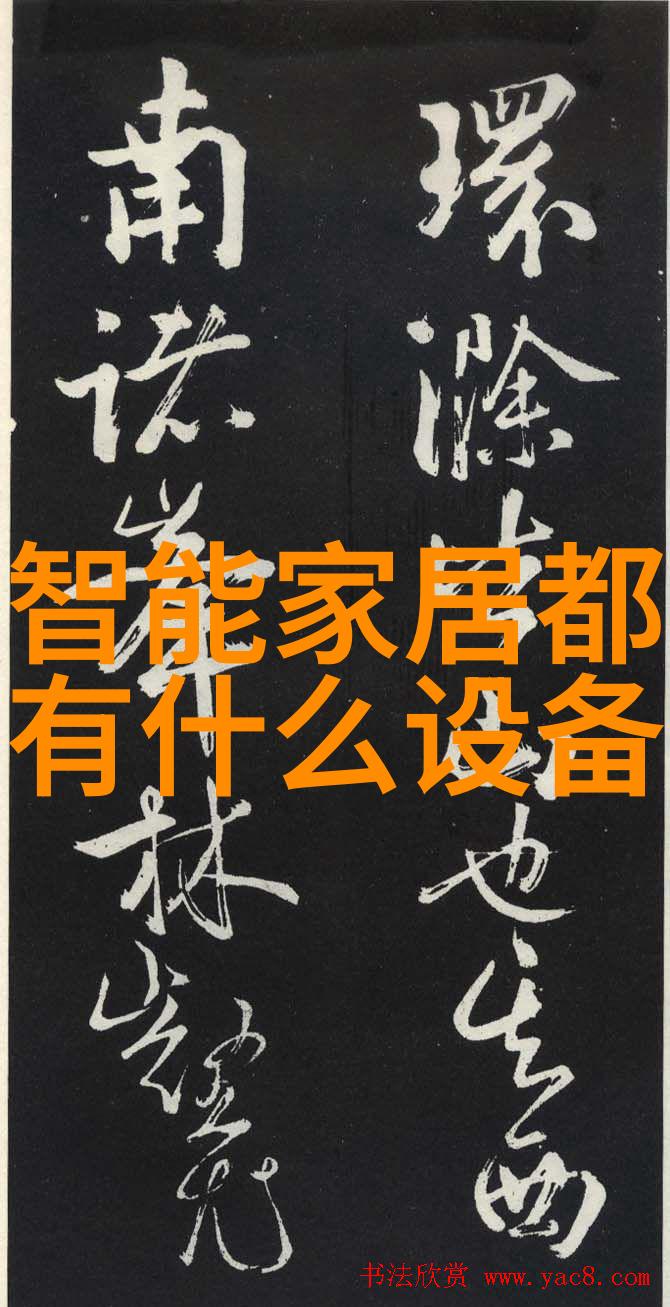 環滁皆山也其西
南諸峯林壑尤
智能家居都
有什么设备
书法欣赏 www.yac8.com